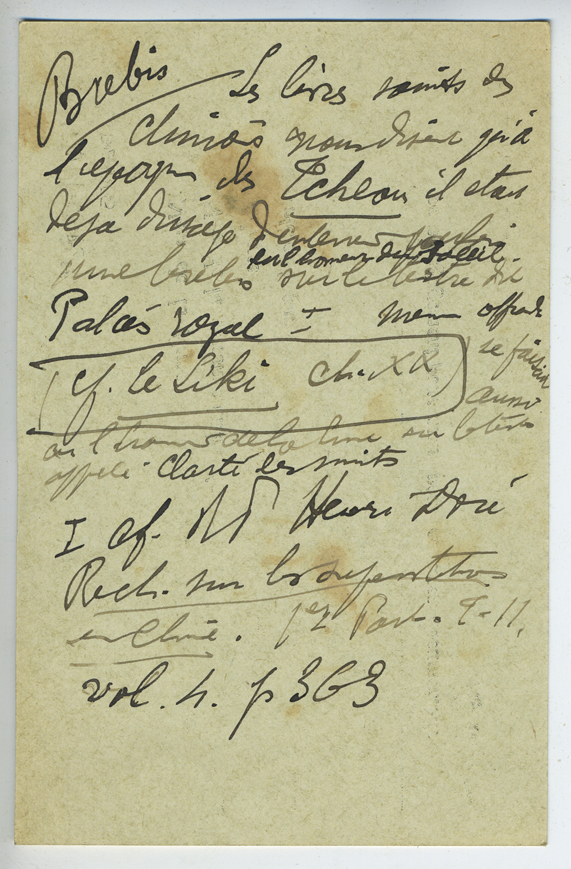 Brebis
Les livres saints des
chinois nous disent qu'à
l'époque des Tcheou il etait
deja d'usage d'enterrer
en l'honneur du Soleil
une brebis sur le tertre du
Palais royal I meme offrande
se faisait
cf. le Liki ch. XX
aussi
en l'honneur de la lune sur le tertre
appelé clarté les nuits
I cf. Henri Doré
Rech. sur les superstitions
en Chine. 1re Part. T-II,
vol. 4. p 363